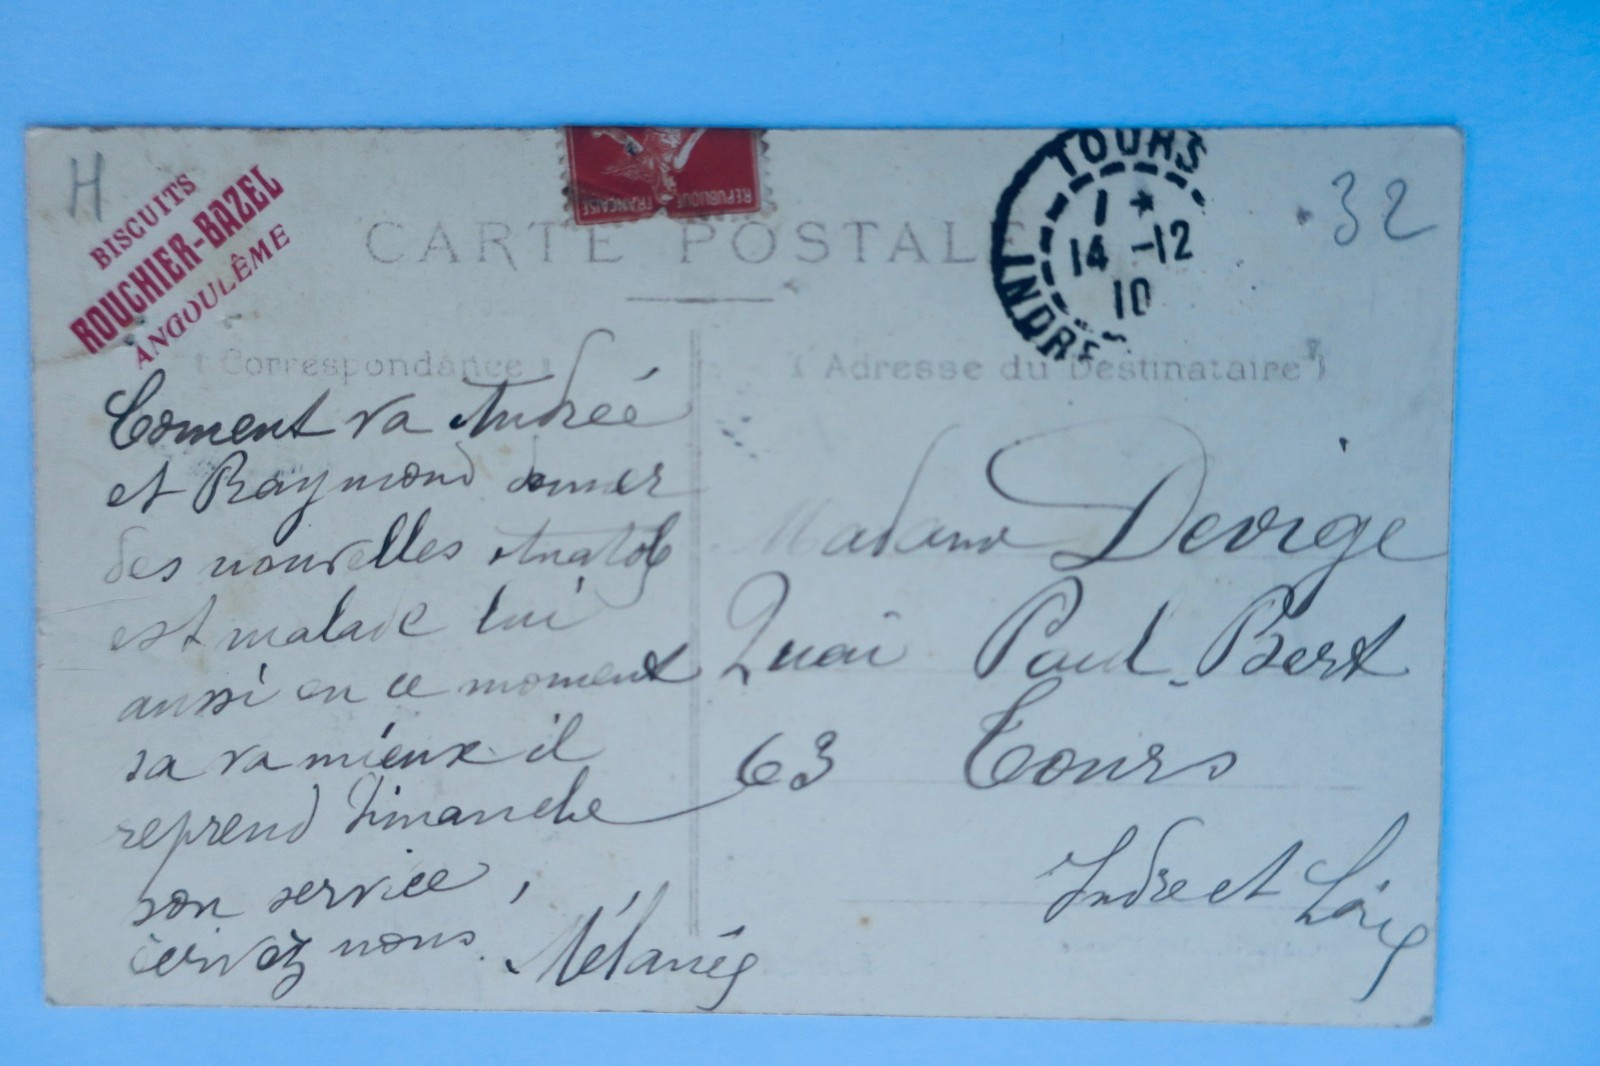 H
BISCUITS
ROUCHIER-BAZEL
ANGOULÊME
REPUBLIQUE FRANÇAISE
CARTE POSTALE
TOURS
1 *
14 -12
10
INDRE
32
Correspondance
Coment va Andréé
et Raymond donner
des nouvelles Anatole
est malade lui
aussi en ce moment
sa va mieux il
reprend Dimanche
son service,
écrivez nous. Mélanie
Adresse du Destinataire
Madame Devige
Quai Paul-Bert
63 Tours
Indre et Loire